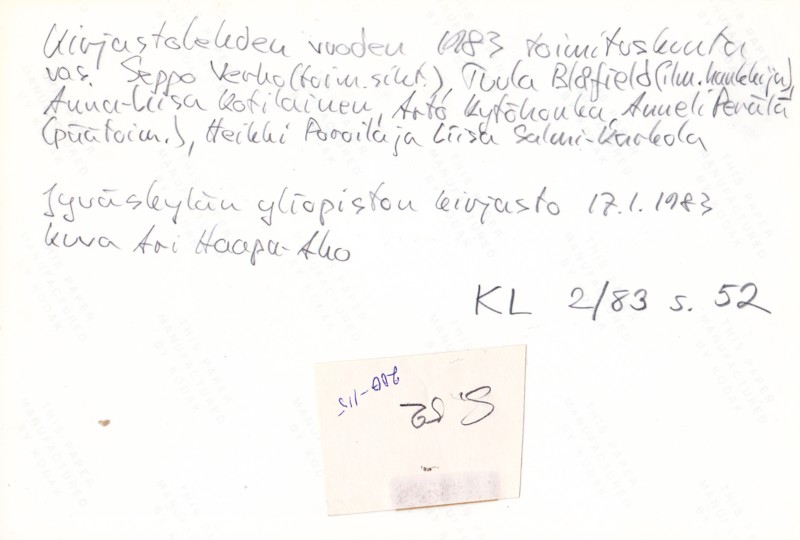 Kirjastolehden vuoden 1983 toimituskunta
vas. Seppo Verho (toim.siht.), Tuula Blåfield (ilm. hankkija),
Anna-Liisa Kotilainen, Arto Kytöhonka, Anneli Perälä
(päätoim.), Heikki Poroila ja Liisa Salmi-Karkola
Jyväskylän yliopiston kirjasto 17.1.1983
kuva Ari Haapa-Aho
KL 2/83 s. 52
S. 52